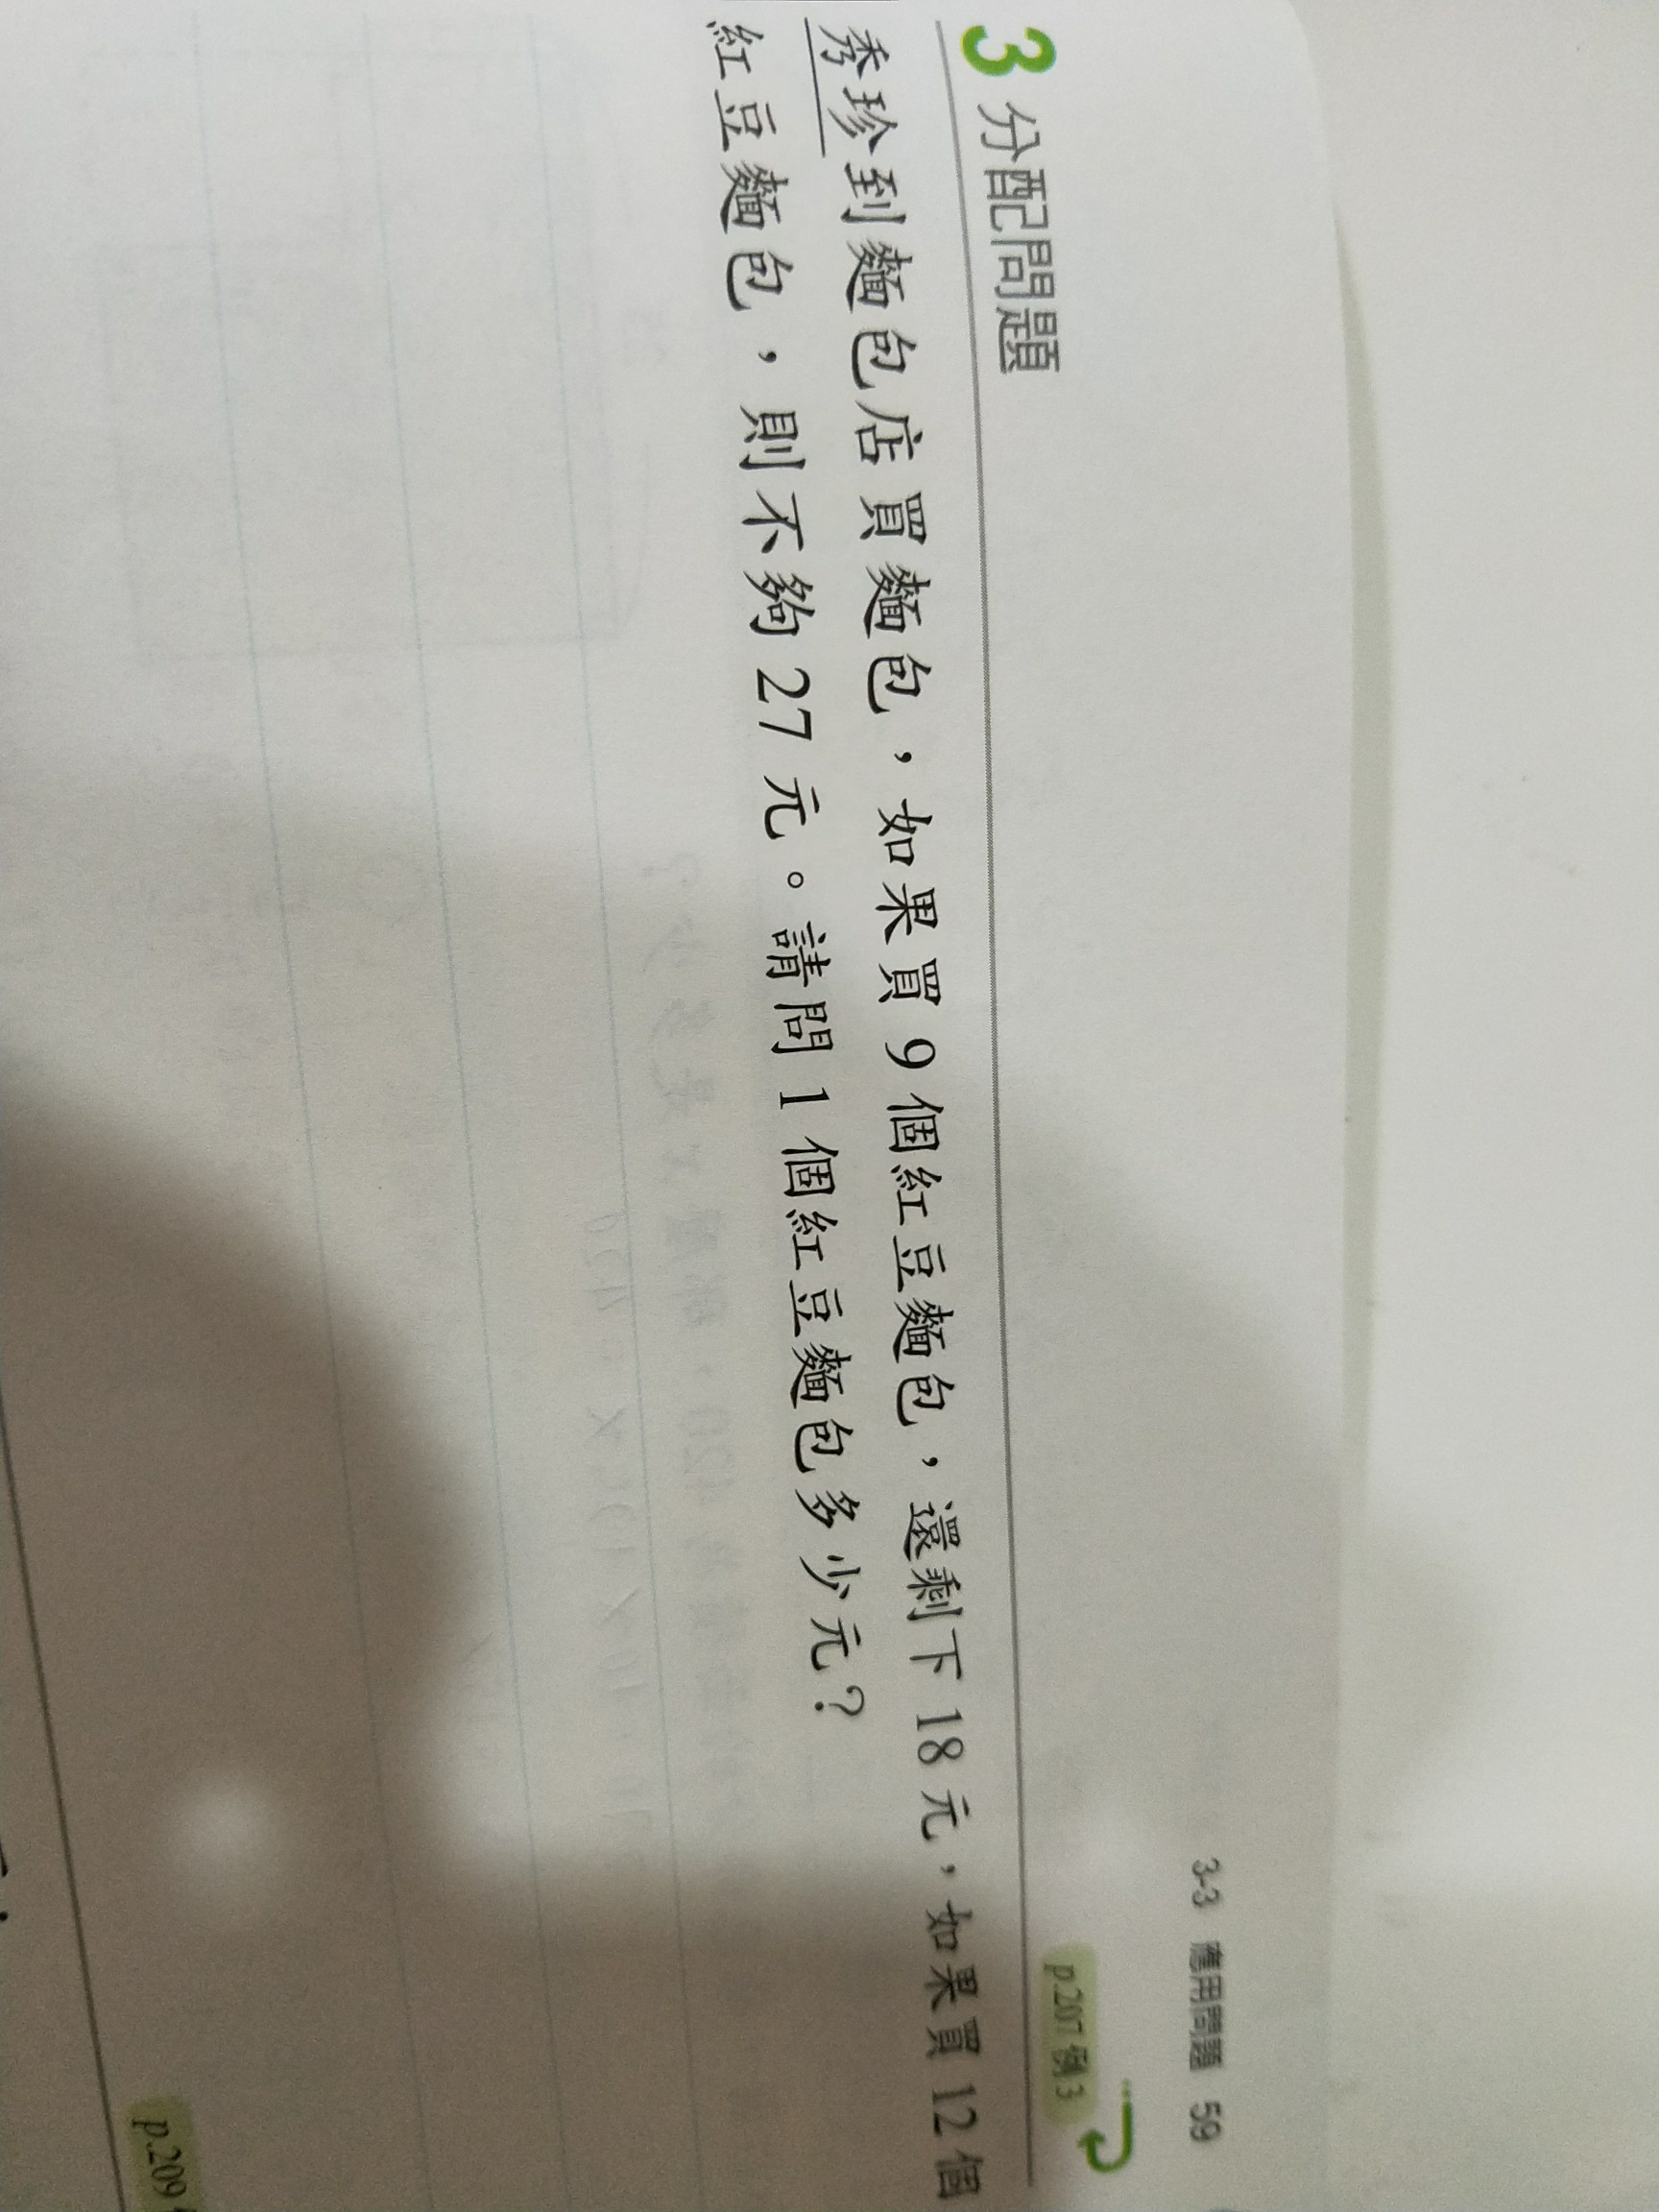 3-3 應用問題 59
3 分配問題
p.207 例 3
秀珍到麵包店買麵包，如果買 9 個紅豆麵包，還剩下 18 元，如果買 12 個
紅豆麵包，則不夠 27 元。請問 1 個紅豆麵包多少元？
p.209